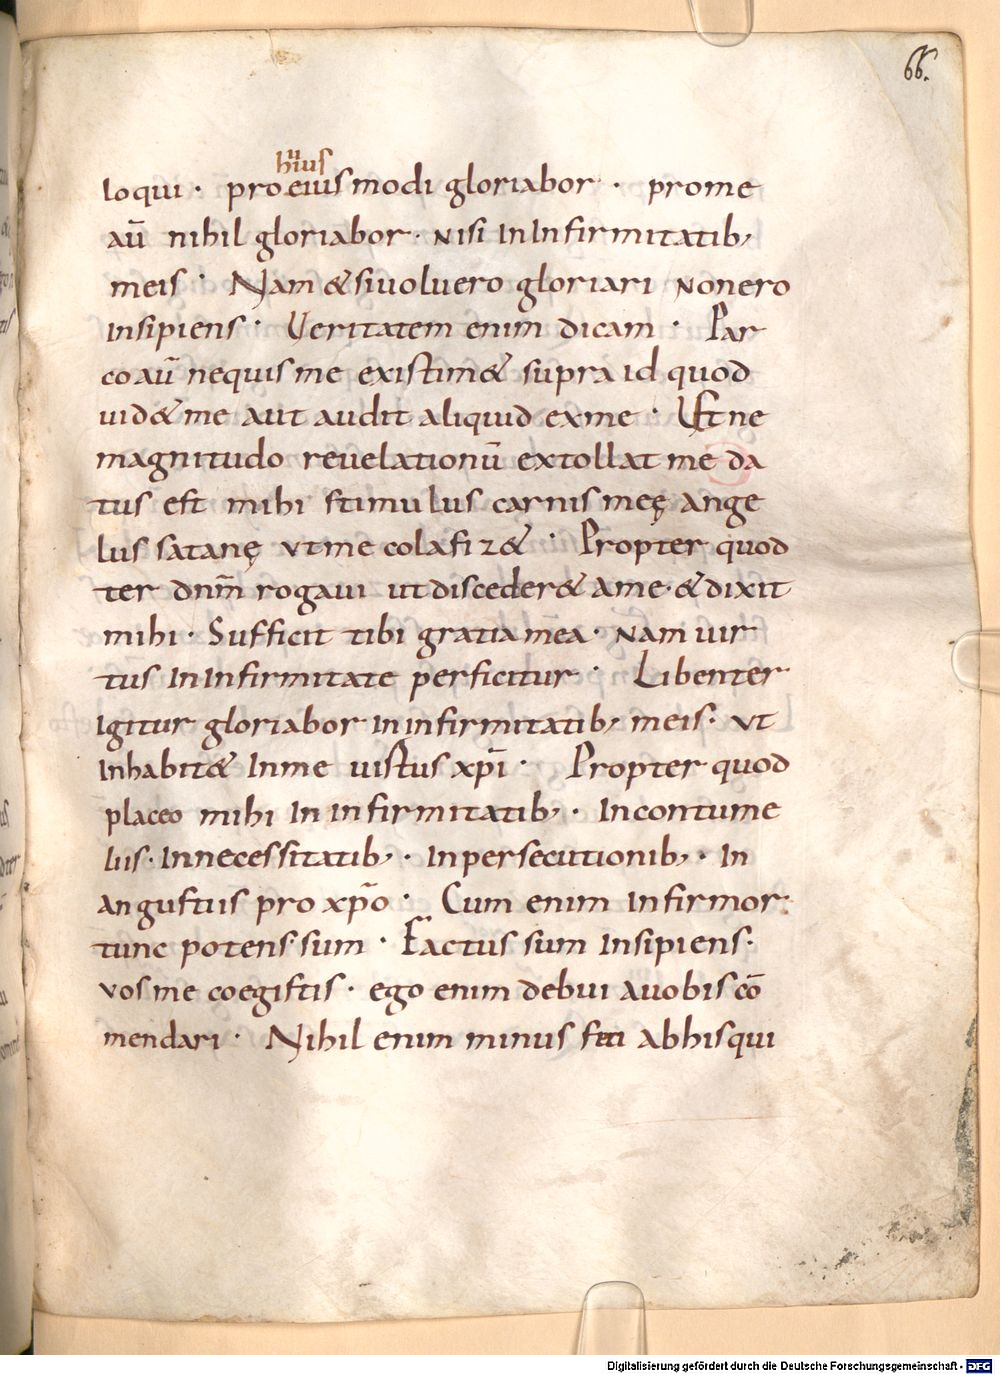 66.
huius
loqui · pro eiusmodi gloriabor · pro me
aū nihil gloriabor · nisi In Infirmitatib;
meis · Nam & si uoluero gloriari non ero
Insipiens · Ueritatem enim dicam · Par
co aū nequis me existim& supra id quod
uid& me aut audit aliquid ex me · Ut ne
magnitudo reuelationū extollat me da
tus est mihi stimulus carnis meę ange
lus satanę ut me colafiz& · Propter quod
ter dnm̄ rogaui ut disceder& a me · & dixit
mihi · Sufficit tibi gratia mea · nam uir
tus In Infirmitate perficitur · Libenter
Igitur gloriabor in infirmitatib; meis · ut
Inhabit& In me uistus xp̄i · Propter quod
placeo mihi In infirmitatib; · In contume
liis · In necessitatib; · In persecutionib; · In
angustiis pro xp̄o · Cum enim Infirmor
tunc potens sum · Factus sum Insipiens ·
vos me coegistis · ego enim debui a uobis cō
mendari · Nihil enim minus feci ab his qui
Digitalisierung gefördert durch die Deutsche Forschungsgemeinschaft - DFG